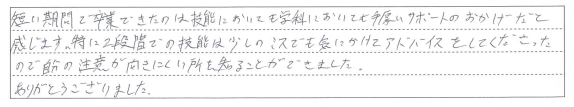 短い期間で卒業できたのは技能においても学科においても手厚いサポートのおかげだと
感じます。特に2段階での技能は少しのミスでも気にかけてアドバイスをしてくださった
ので自分の注意が向きにくい所を知ることができました。
ありがとうございました。